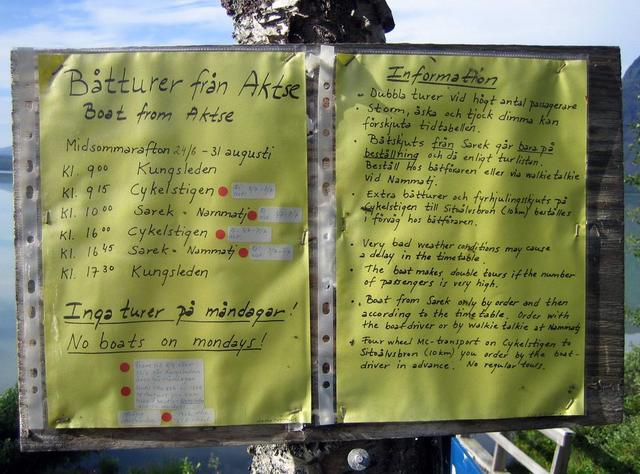 Båtturer från Aktse
Boat from Aktse
Midsommarafton 24/6 - 31 augusti
Kl. 9 00 Kungsleden
Kl. 9 15 Cykelstigen
Kl. 10 00 Sarek - Nammatj
Kl. 16 00 Cykelstigen
Kl. 16 45 Sarek - Nammatj
Kl. 17 30 Kungsleden
Inga turer på måndagar!
No boats on mondays!
Information
• Dubbla turer vid högt antal passagerare
• Storm, åska och tjock dimma kan
förskjuta tidtabellen.
• Båtskjuts från Sarek går bara på
beställning och då enligt turlistan.
Beställ hos båtföraren eller via walkie talkie
vid Nammatj.
• Extra båtturer och fyrhjulingskjuts på
Cykelstigen till Sitoälvsbron (10km) beställes
i förväg hos båtföraren.
• Very bad weather conditions may cause
a delay in the timetable.
• The boat makes double tours if the number
of passengers is very high.
• Boat from Sarek only by order and then
according to the time table. Order with
the boatdriver or by walkie talkie at Nammatj
• Four wheel MC-transport on Cykelstigen to
Sitoälvsbron (10km) you order by the boat-
driver in advance. No regular tours.